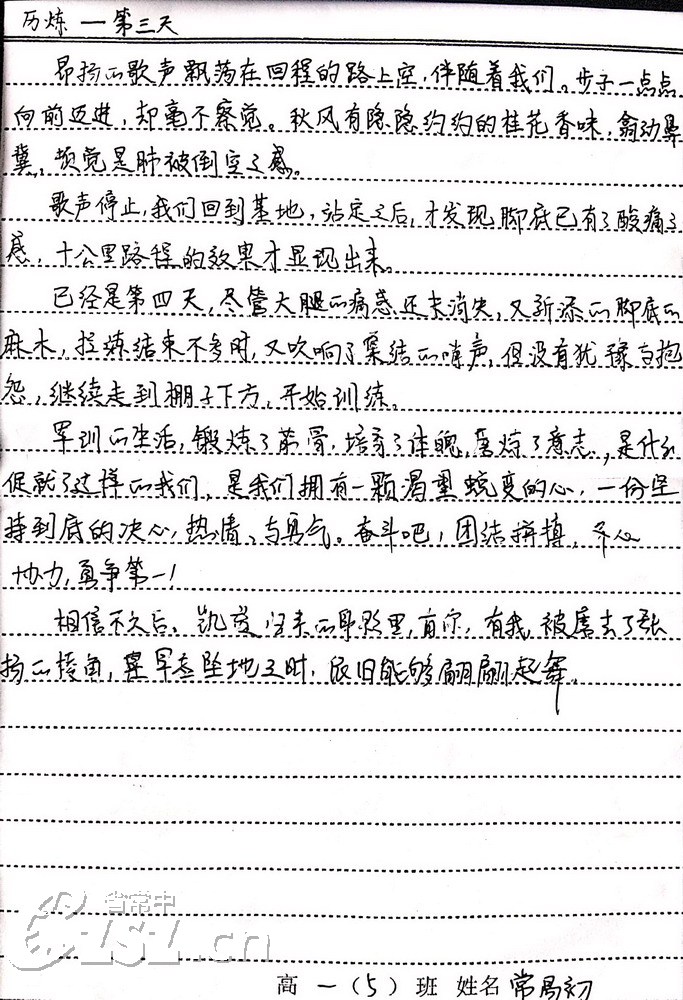 历炼 — 第三天
昂扬的歌声飘荡在回程的路上空,伴随着我们。步子一点点
向前迈进,却毫不察觉。秋风有隐隐约约的桂花香味,翕动鼻
翼,顿觉是肺被倒空之感。
歌声停止,我们回到基地,站定之后,才发现脚底已有了酸痛之
感,十公里路程的效果才显现出来。
已经是第四天,尽管大腿的痛感还未消失,又新添的脚底的
麻木,拉炼结束不多时,又吹响了集结的哨声,但没有犹豫与抱
怨,继续走到棚子下方,开始训练。
军训的生活,锻炼了筋骨,培育了体魄,磨炼了意志,是什么
促就了这样的我们,是我们拥有一颗渴望蜕变的心,一份坚
持到底的决心,热情、与勇气。奋斗吧,团结拼搏,齐心
协力,勇争第一!
相信不久后,凯旋归来的身影里,有你,有我,被磨去了张
扬的棱角,尘埃坠地之时,依旧能够翩翩起舞。
省常中
cn
高一(5)班 姓名